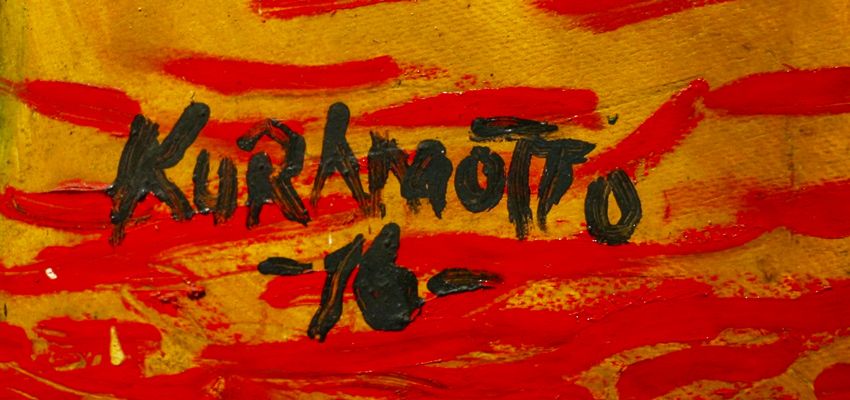 KURAMOTTO
-76-